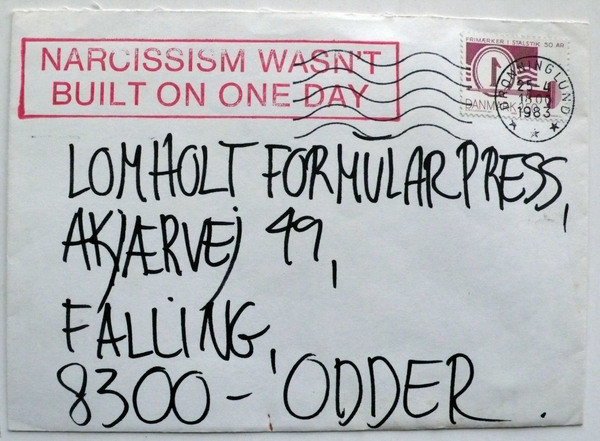 NARCISSISM WASN'T
BUILT ON ONE DAY
FRIMÆRKER I STÅLSTIK 50 ÅR
DANMARK
BRØNNINGLUND
25-4
1983
LOMHOLT FORMULAR PRESS,
AKJÆRVEJ 49,
FALLING,
8300 - ODDER.